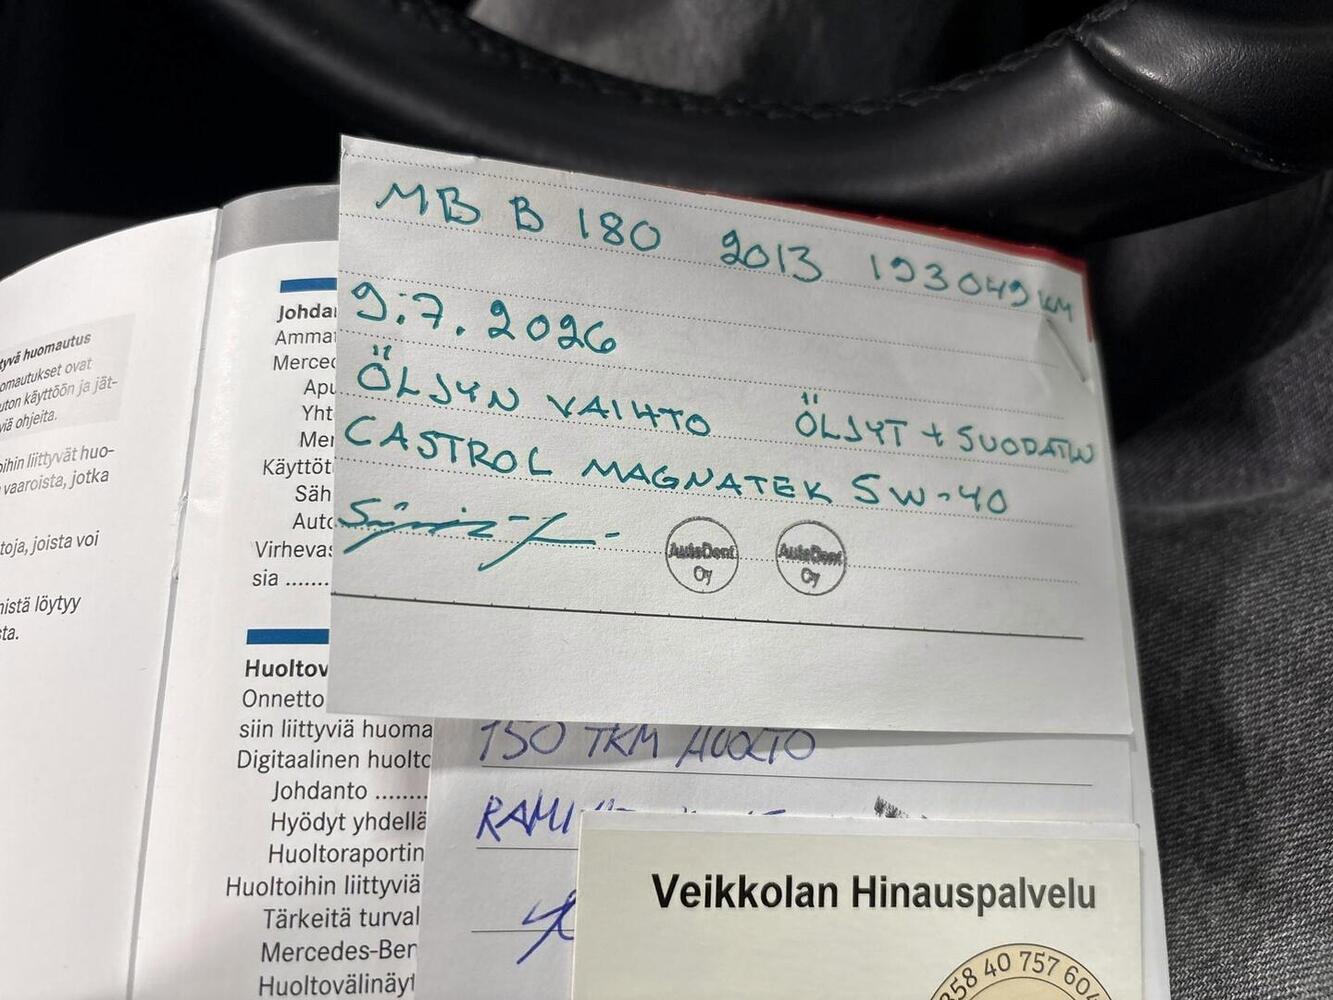 MB B 180 2013 193049 KM
9.7.2026
ÖLJYN VAIHTO ÖLJYT + SUODATIN
CASTROL MAGNATEK 5W-40
AutoDent Oy
AutoDent Oy
tyvä huomautus
omautukset ovat
uton käyttöön ja jät-
viä ohjeita.
oihin liittyvät huo-
vaaroista, jotka
toja, joista voi
mistä löytyy
sta.
Johda
Ammat
Merced
Apu
Yht
Mer
Käyttöt
Säh
Auto
Virhevas
sia ........
Huoltov
Onnetto
siin liittyviä huoma
Digitaalinen huolto
Johdanto ........
Hyödyt yhdellä
Huoltoraportin
Huoltoihin liittyviä
Tärkeitä turval
Mercedes-Ben
Huoltovälinäyt
150 TKM HUOLTO
RAMI
Veikkolan Hinauspalvelu
358 40 757 604